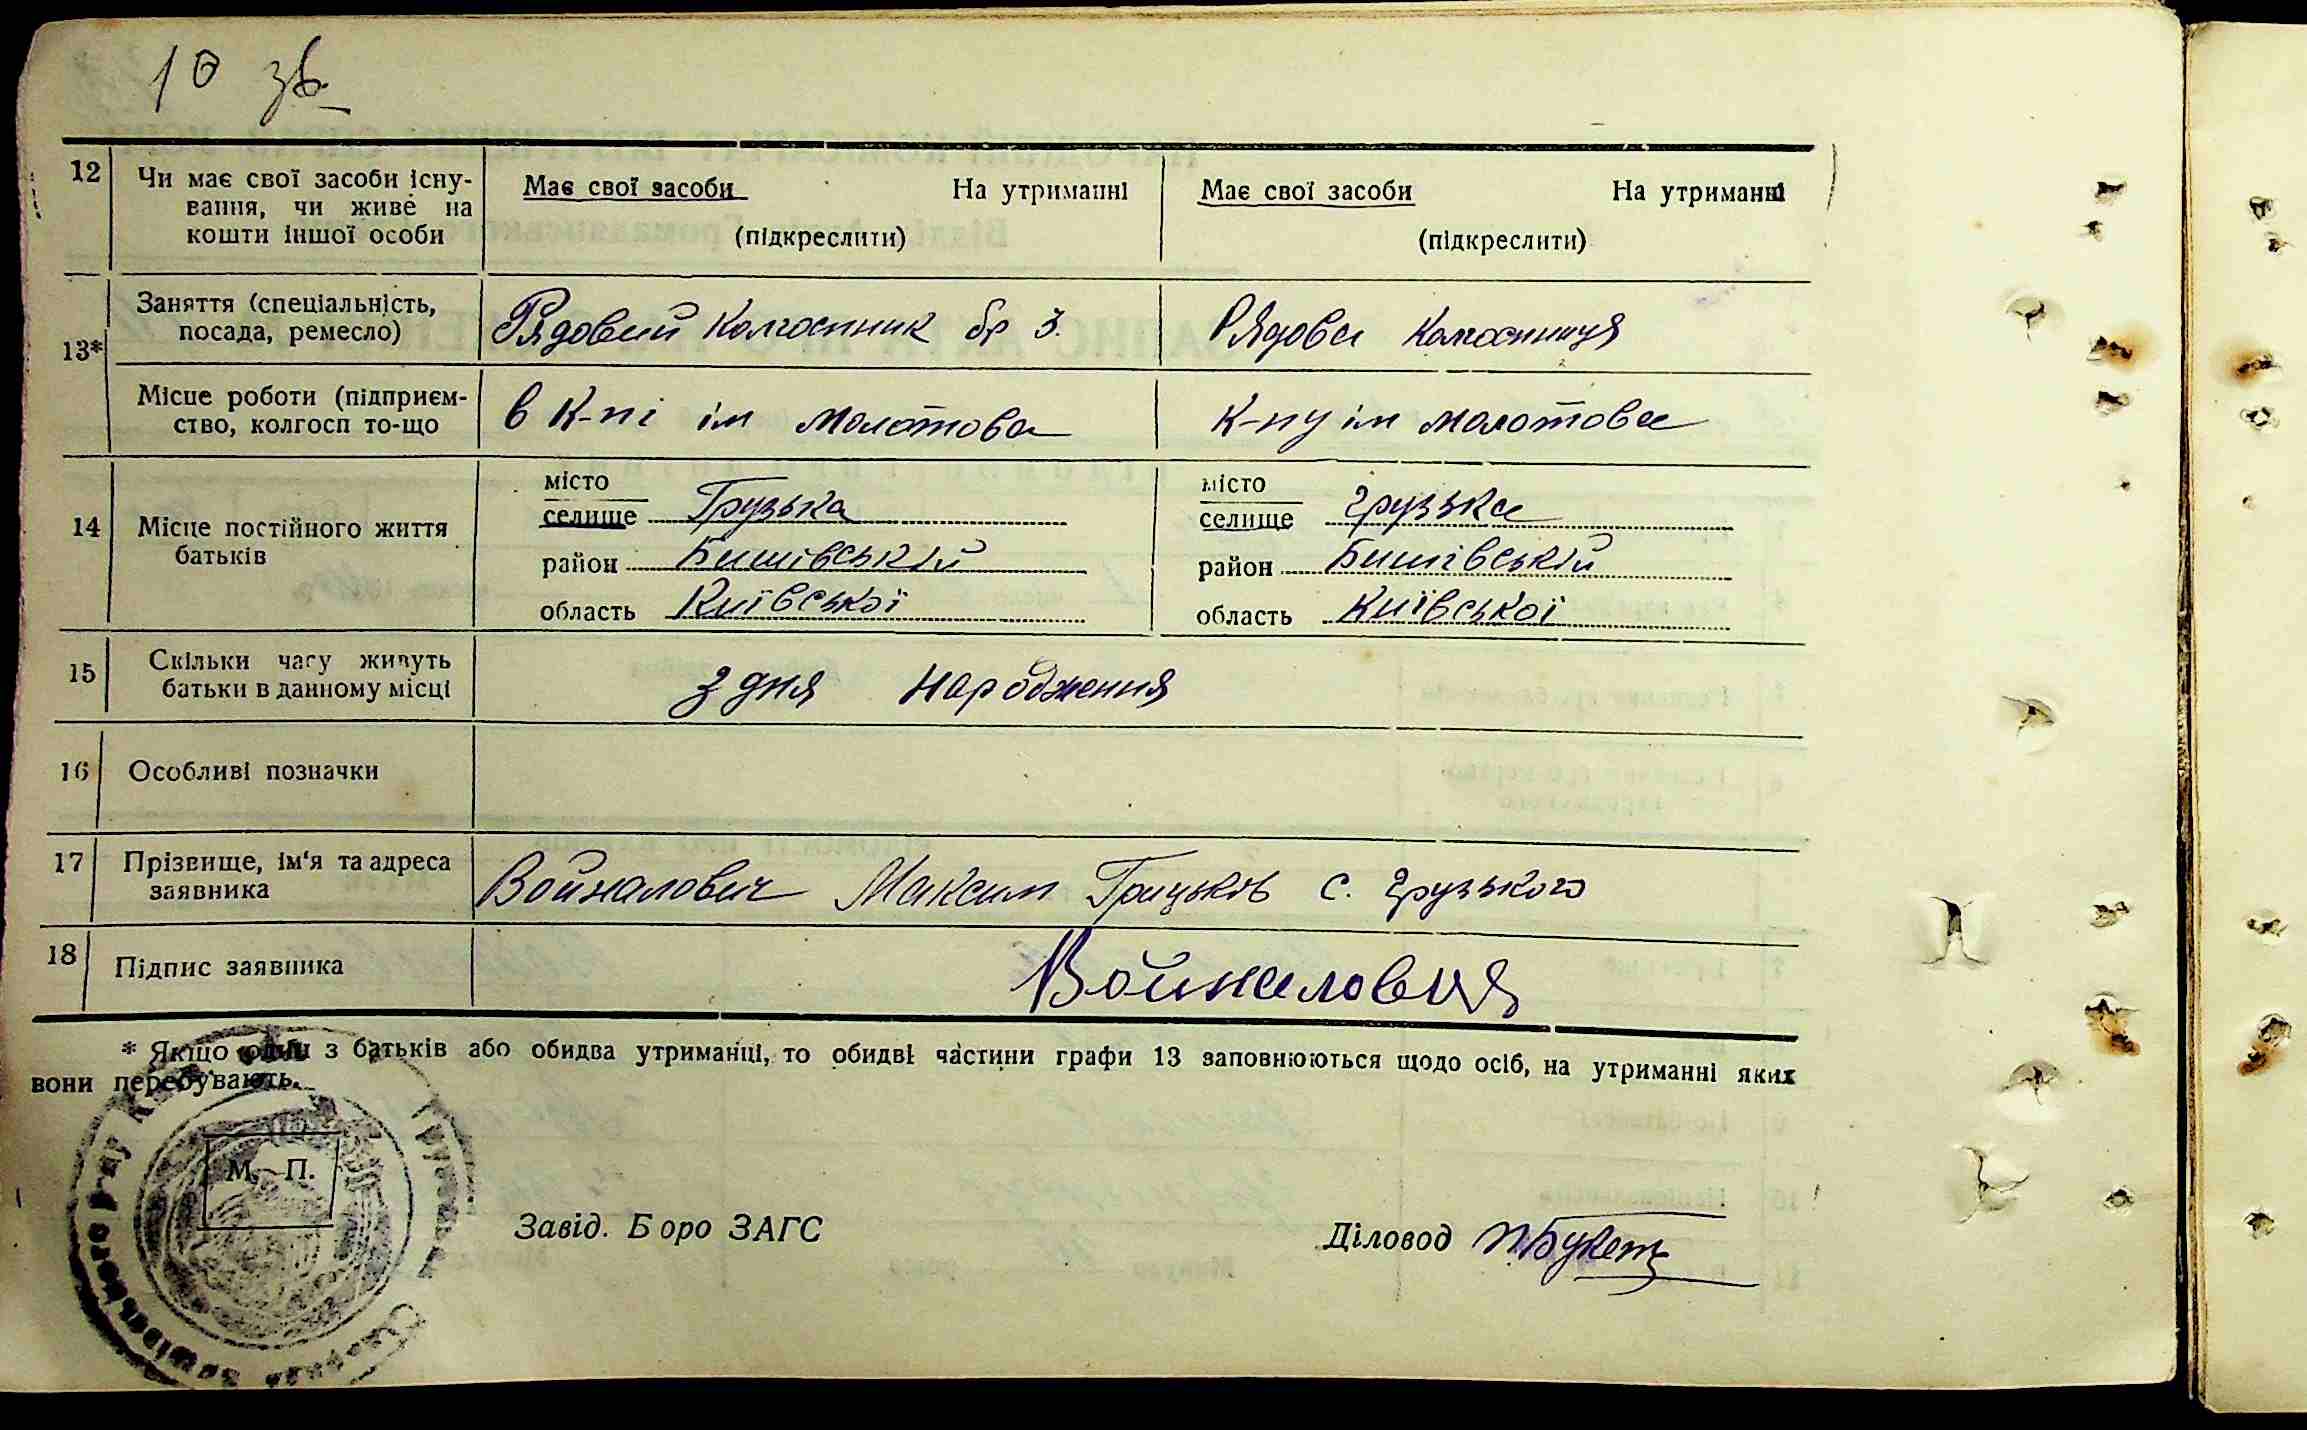 10 зв.
12 Чи має свої засоби існу- Має свої засоби На утриманні Має свої засоби На утриманні
вання, чи живе на
кошти іншої особи (підкреслити) (підкреслити)
13* Заняття (спеціальність,
посада, ремесло) Рядовий колгоспник бр 3. Рядова колгоспниця
Місце роботи (підприєм-
ство, колгосп то-що в к-пі ім Молотова к-пу ім Молотова
14 Місце постійного життя
батьків
місто
селище Грузька
район Бишівський
область Київської
місто
селище Грузька
район Бишівській
область Київської
15 Скільки часу живуть
батьки в данному місці з дня народження
16 Особливі позначки
17 Прізвище, ім'я та адреса
заявника Войналович Максим Грицьків с. Грузького
18 Підпис заявника Войналович
* Якщо один з батьків або обидва утриманці, то обидві частини графи 13 заповнюються щодо осіб, на утриманні яких
вони перебувають.
М. П.
Завід. Б оро ЗАГС Діловод